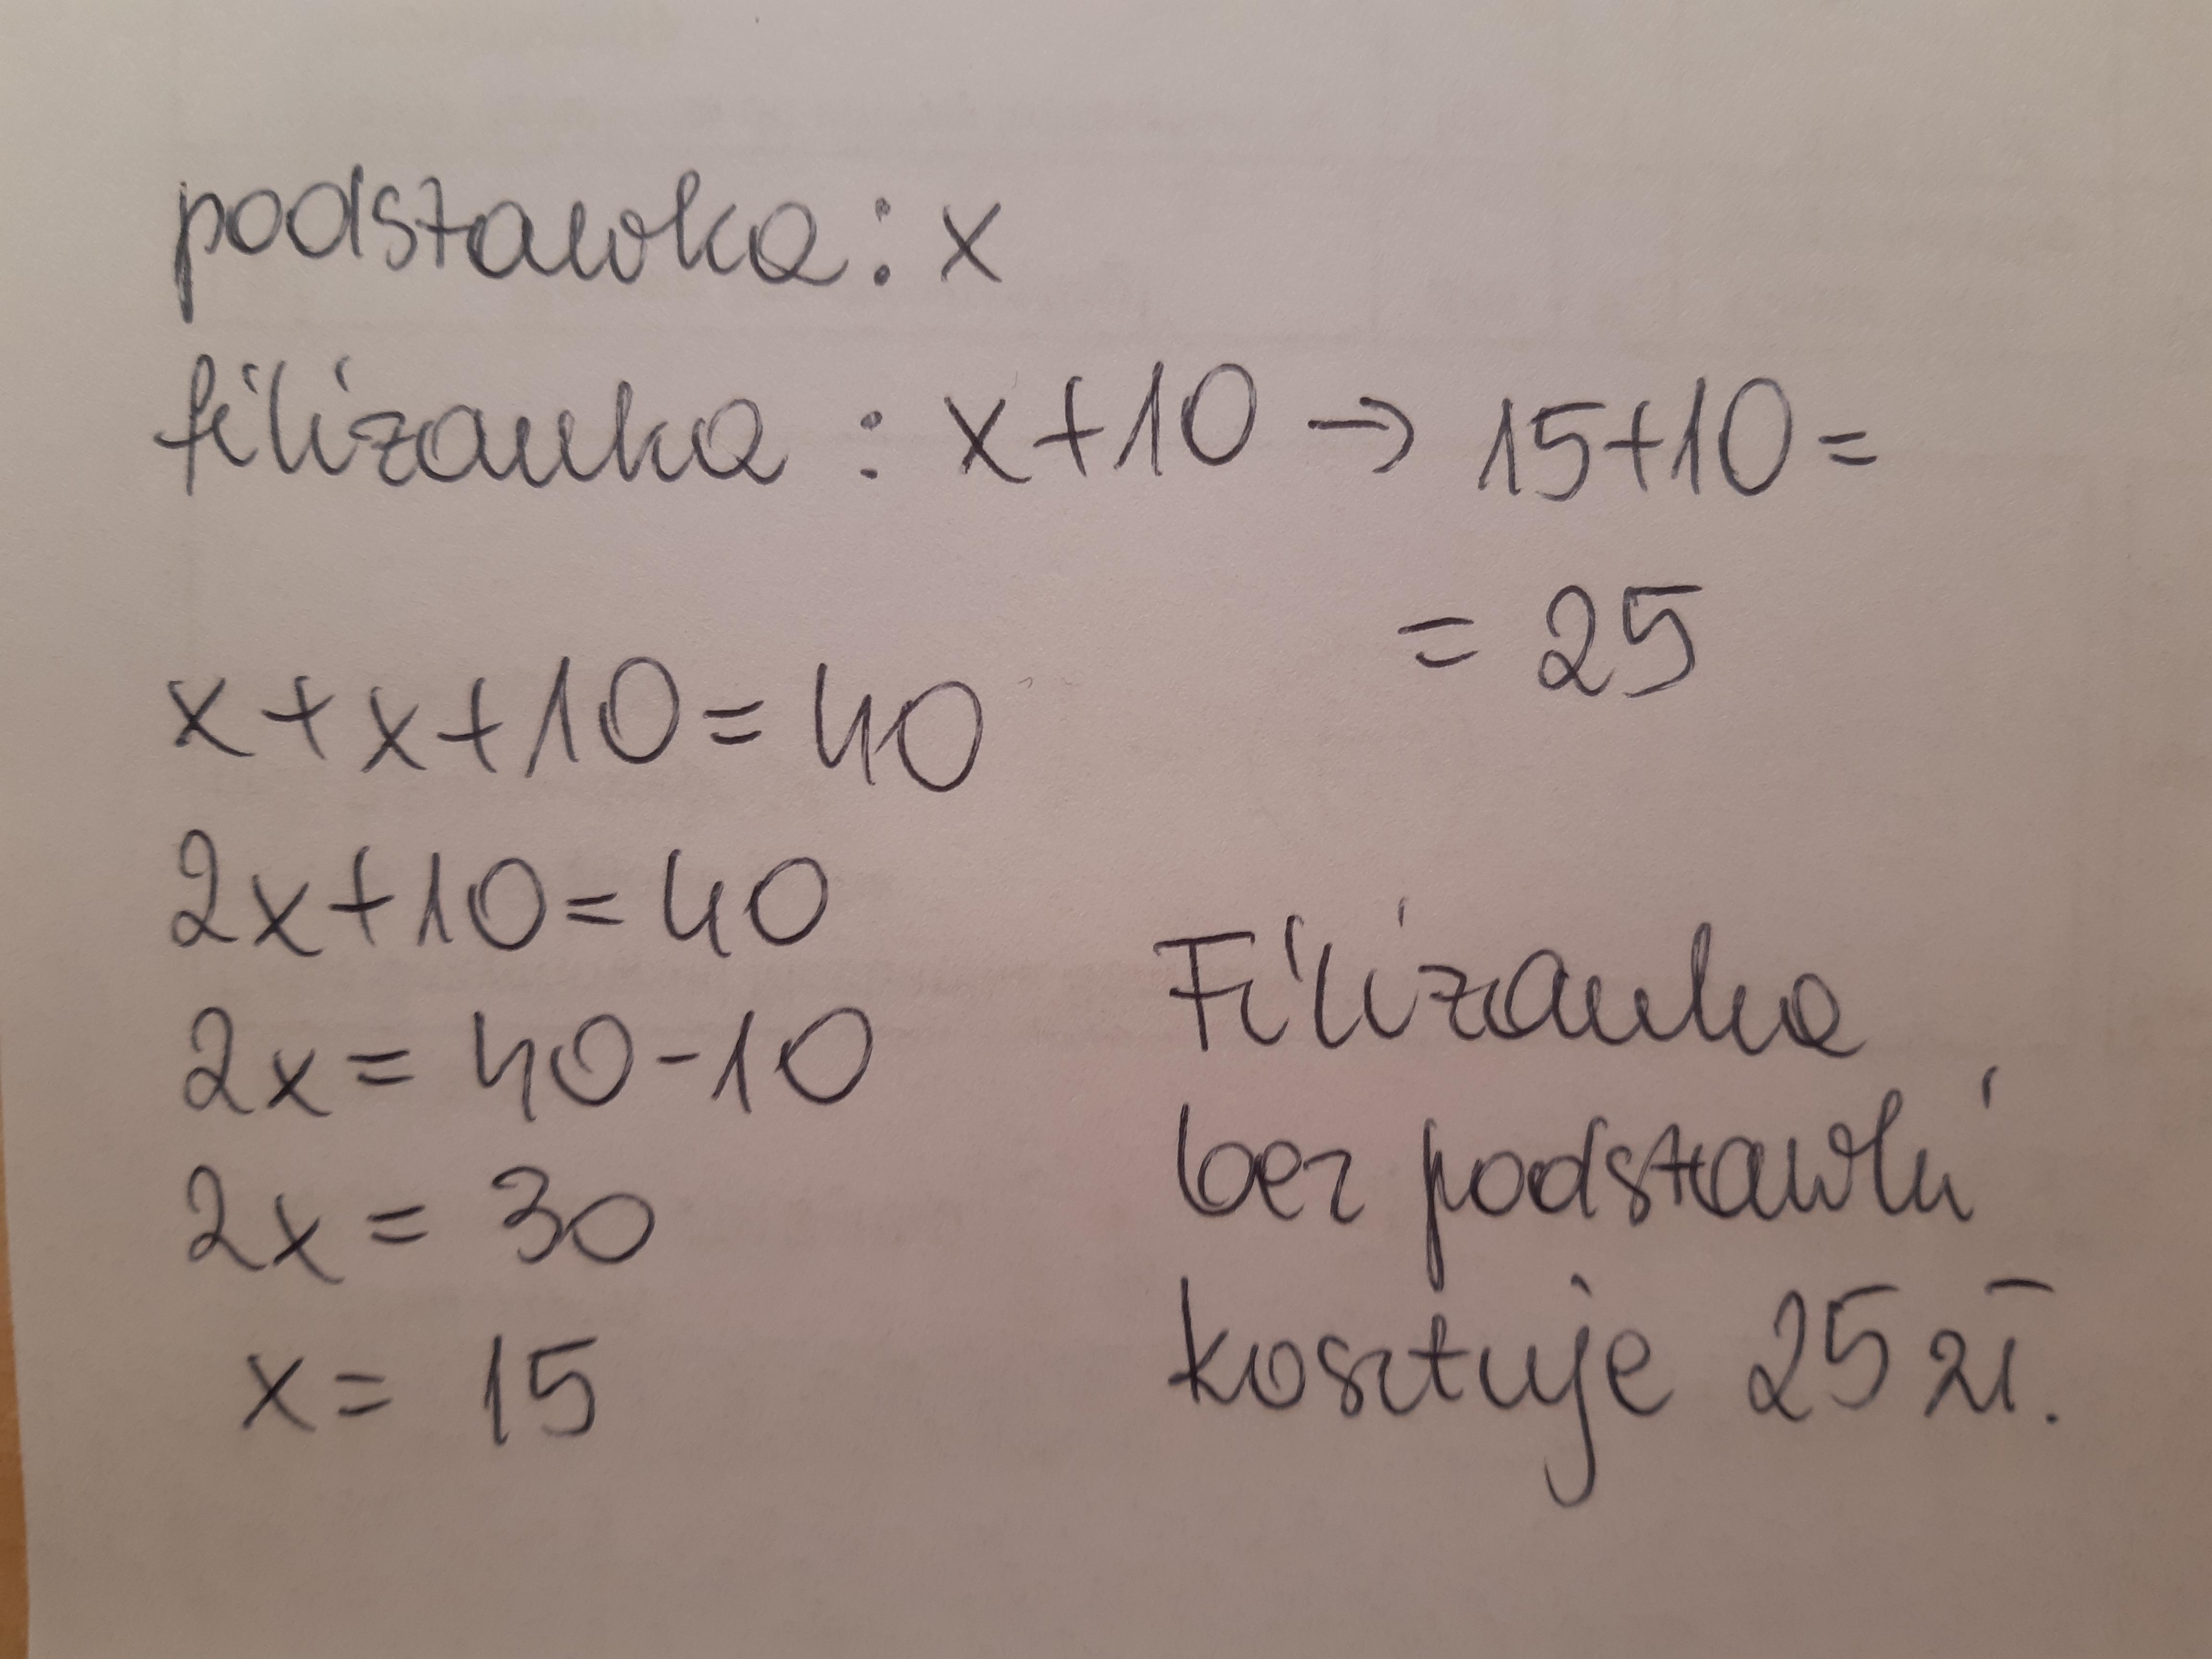 podstawka : x
filiżanka : x + 10 → 15 + 10 =
= 25
x + x + 10 = 40
2x + 10 = 40
2x = 40 - 10
2x = 30
x = 15
Filiżanka
bez podstawki
kosztuje 25 zł.